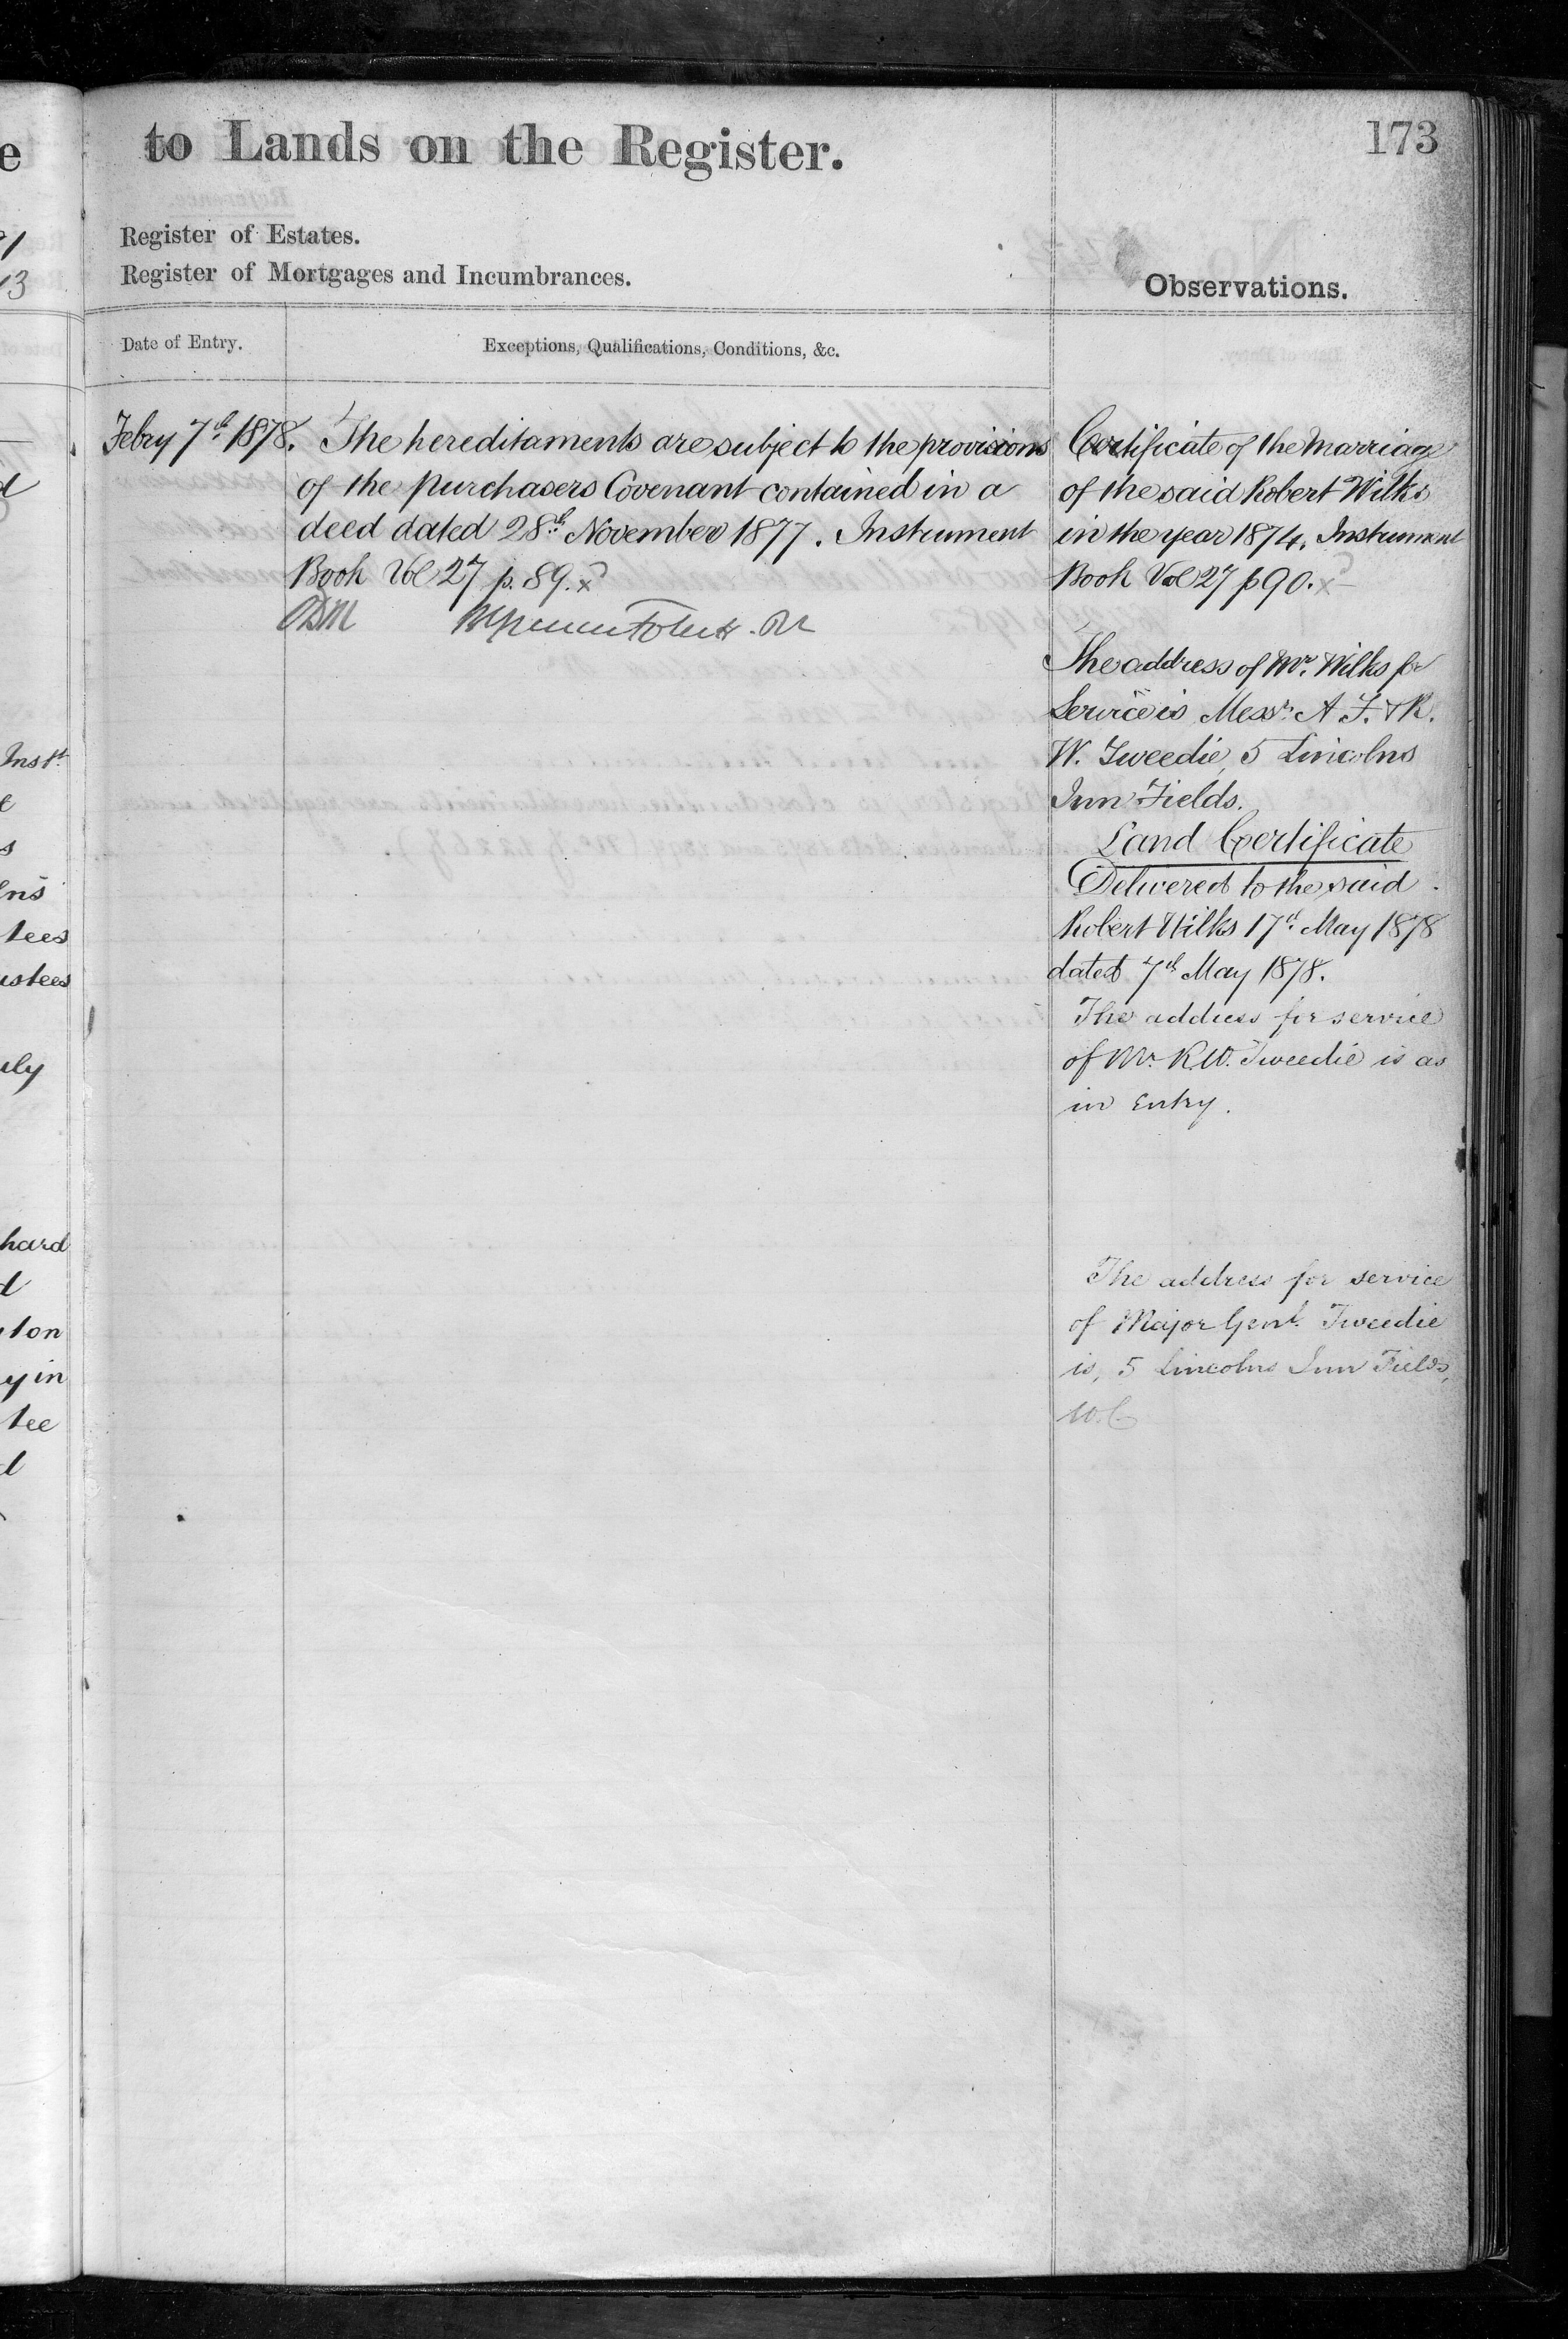 to Lands on the Register.
173
Register of Estates.
Register of Mortgages and Incumbrances.
Observations.
Date of Entry.
Exceptions, Qualifications, Conditions, &c.
Febry 7th 1878.
The hereditaments are subject to the provisions
of the purchasers Covenant contained in a
deed dated 28th November 1877. Instrument
Book Vol 27 p. 89.
Certificate of the Marriage
of the said Robert Wilks
in the year 1874. Instrument
Book Vol 27 p 90.
The address of Mr. Wilks for
Service is Messrs. A F. & R.
W. Tweedie, 5 Lincolns
Inn Fields.
Land Certificate
Delivered to the said
Robert Wilks 17th May 1878
dated 7th May 1878.
The address for service
of Mr. R.W. Tweedie is as
in Entry.
The address for service
of Major Genl. Tweedie
is, 5 Lincolns Inn Fields,
W.C
e
91
13
d
Inst.
e
s
lns
tees
ustees
uly
hard
d
ton
y in
tee
d